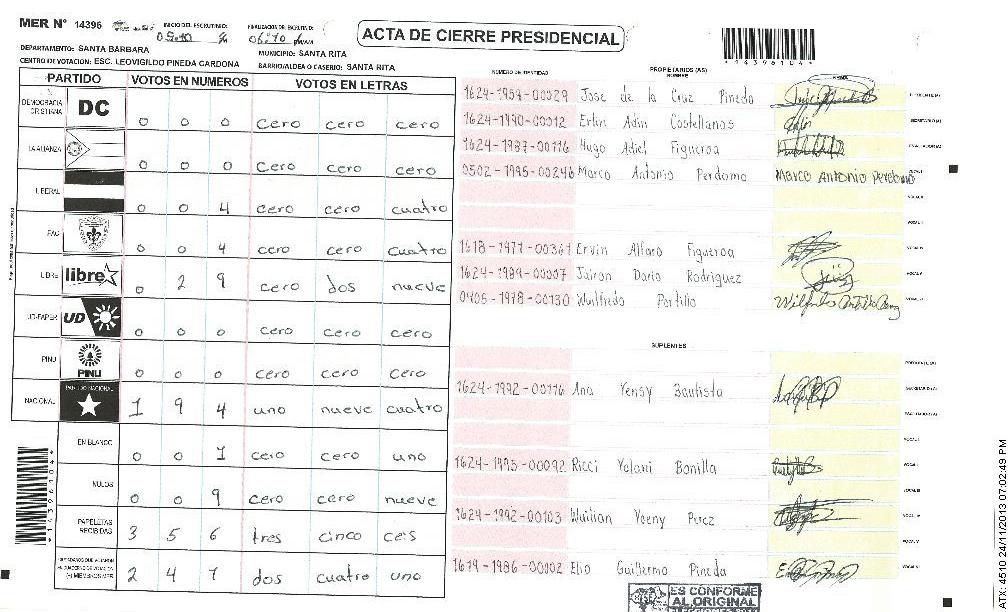 MER N° 14396 INICIO DEL ESCRUTINIO: FINALIZACION DE ESCRUTINIO:
05:10 06:10 PM/AM
ACTA DE CIERRE PRESIDENCIAL
*14396104*
DEPARTAMENTO: SANTA BARBARA MUNICIPIO: SANTA RITA
CENTRO DE VOTACION: ESC. LEOVIGILDO PINEDA CARDONA BARRIO/ALDEA O CASERIO: SANTA RITA
PARTIDO VOTOS EN NUMEROS VOTOS EN LETRAS
DEMOCRACIA CRISTIANA DC 0 0 0 cero cero cero
LA ALIANZA 0 0 0 cero cero cero
LIBERAL 0 0 4 cero cero cuatro
PAC 0 0 4 cero cero cuatro
LIBRE libre 0 2 9 cero dos nueve
UD-FAPER UD 0 0 0 cero cero cero
PINU PINU 0 0 0 cero cero cero
NACIONAL PARTIDO NACIONAL 1 9 4 uno nueve cuatro
EN BLANCO 0 0 1 cero cero uno
NULOS 0 0 9 cero cero nueve
PAPELETAS RECIBIDAS 3 5 6 tres cinco ceis
CIUDADANOS QUE VOTARON
(+) MIEMBROS MER 2 4 1 dos cuatro uno
NUMERO DE IDENTIDAD PROPIETARIOS (AS) NOMBRE FIRMA
1624-1954-00029 Jose de la Cruz Pineda PRESIDENTE (A)
1624-1990-00012 Erlin Adin Costellanos SECRETARIO (A)
1624-1987-00116 Hugo Adiel Figueroa ESCRUTADOR (A)
0502-1995-00246 Marco Antonio Perdomo Marco Antonio Perdomo VOCAL I
VOCAL II
VOCAL III
1618-1971-00361 Ervin Alfaro Figueroa VOCAL IV
1624-1989-00007 Jairon Dario Rodriguez VOCAL V
0405-1978-00130 Wuilfredo Portillo
SUPLENTES
PRESIDENTE (A)
1624-1992-00116 Ana Yensy Bautista SECRETARIO (A)
ESCRUTADOR (A)
VOCAL I
1624-1993-00092 Ricci Yolani Bonilla VOCAL II
VOCAL III
1624-1992-00103 Wuilian Yoeny Perez VOCAL IV
VOCAL V
1619-1986-00102 Elio Guillermo Pineda
*14396104*
ES CONFORME
AL ORIGINAL
ATX: 4510 24/11/2013 07:02:49 PM